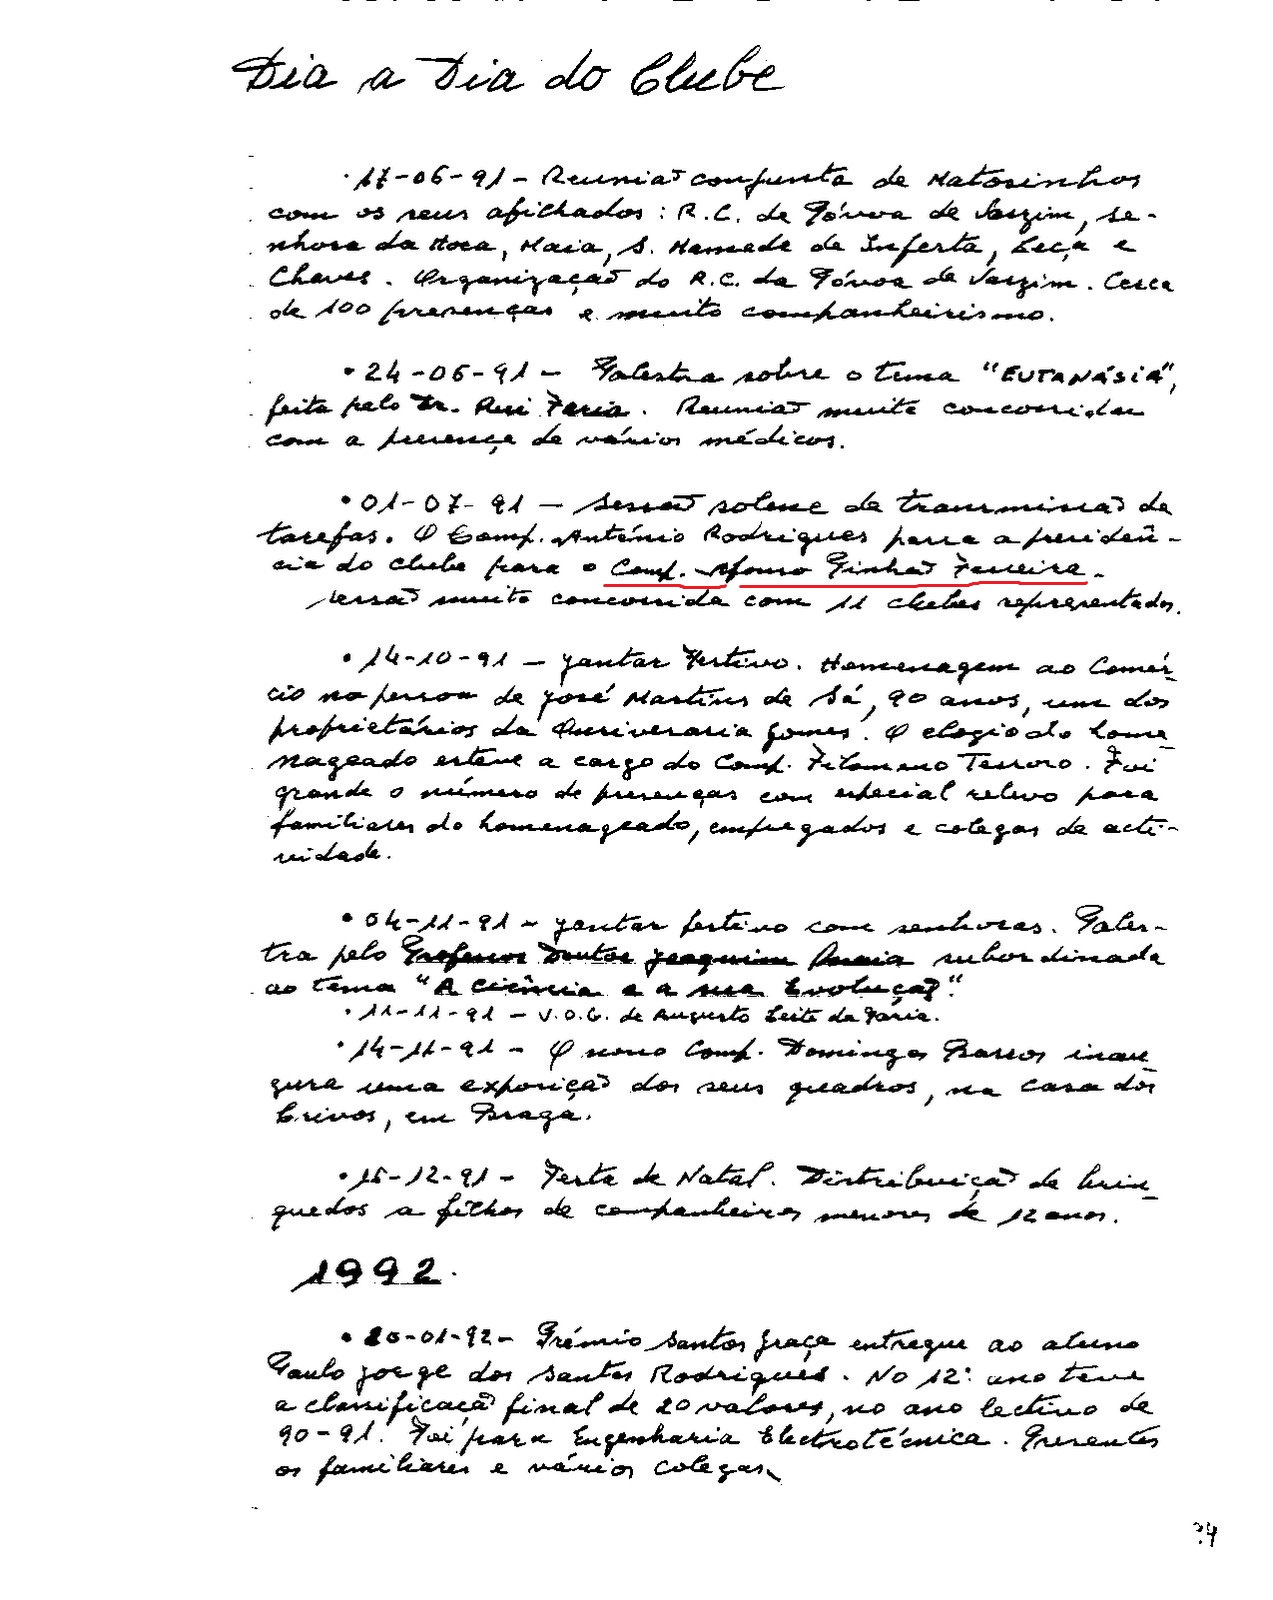 Dia a Dia do Clube
• 17-06-91 - Reunião conjunta de Matosinhos
com os seus afilhados: R.C. de Póvoa de Varzim, Se-
nhora da Hora, Maia, S. Mamede de Infesta, Leça e
Chaves. Organização do R.C. da Póvoa de Varzim. Cerca
de 100 presenças e muito companheirismo.
• 24-06-91 - Palestra sobre o tema "EUTANÁSIA",
feita pelo Dr. Rui Faria. Reunião muito concorrida
com a presença de vários médicos.
• 01-07-91 - Sessão solene de transmissão de
tarefas. O Comp. António Rodrigues passa a presidên-
cia do clube para o Comp. Afonso Pinhão Ferreira.
Sessão muito concorrida com 11 clubes representados.
• 14-10-91 - Jantar Festivo. Homenagem ao Comér-
cio na pessoa de José Martins de Sá, 90 anos, um dos
proprietários da Ourivesaria Gomes. O elogio do home-
nageado esteve a cargo do Comp. Filomeno Terroso. Foi
grande o número de presenças com especial relevo para
familiares do homenageado, empregados e colegas de acti-
vidade.
• 04-11-91 - Jantar festivo com senhoras. Pales-
tra pelo Professor Doutor Joaquim subordinada
ao tema "A Ciência e a sua Evolução".
• 11-11-91 - V.O.G. de Augusto Leite da Faria.
• 14-11-91 - O novo Comp. Domingos Barros inau-
gura uma exposição dos seus quadros, na casa dos
Crivos, em Braga.
• 16-12-91 - Festa de Natal. Distribuição de brin-
quedos a filhos de companheiros menores de 12 anos.
1992.
• 20-01-92 - Prémio Santos Graça entregue ao aluno
Paulo Jorge dos Santos Rodrigues. No 12º ano teve
a classificação final de 20 valores, no ano lectivo de
90-91. Foi para Engenharia Electrotécnica. Presentes
os familiares e vários colegas.